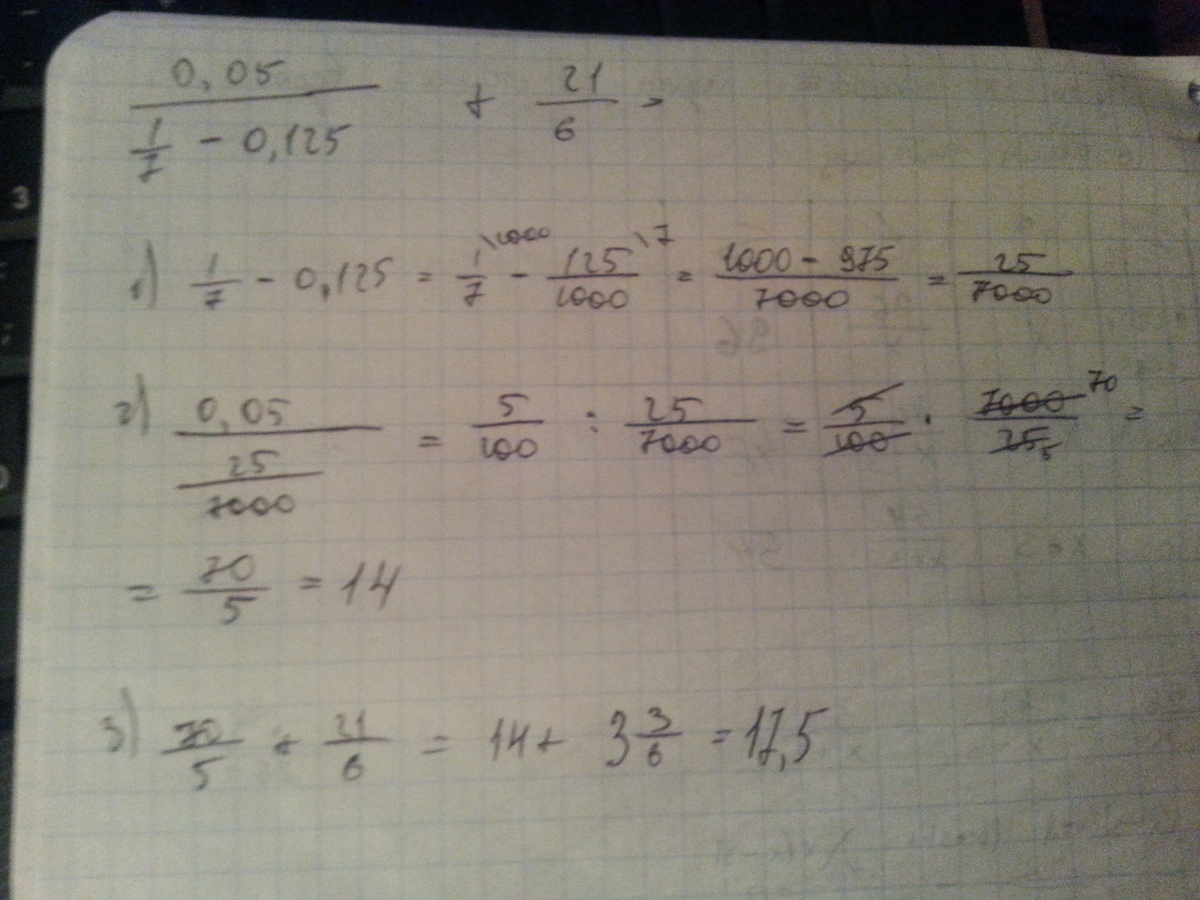 0,05 / (1/7 - 0,125) + 21/6 =
1) 1/7 - 0,125 = 1/7 \1000 - 125/1000 \7 = (1000 - 975)/7000 = 25/7000
2) 0,05 / (25/7000) = 5/100 : 25/7000 = 5/100 · 7000/25 70 5 =
= 70/5 = 14
3) 70/5 + 21/6 = 14 + 3 3/6 = 17,5